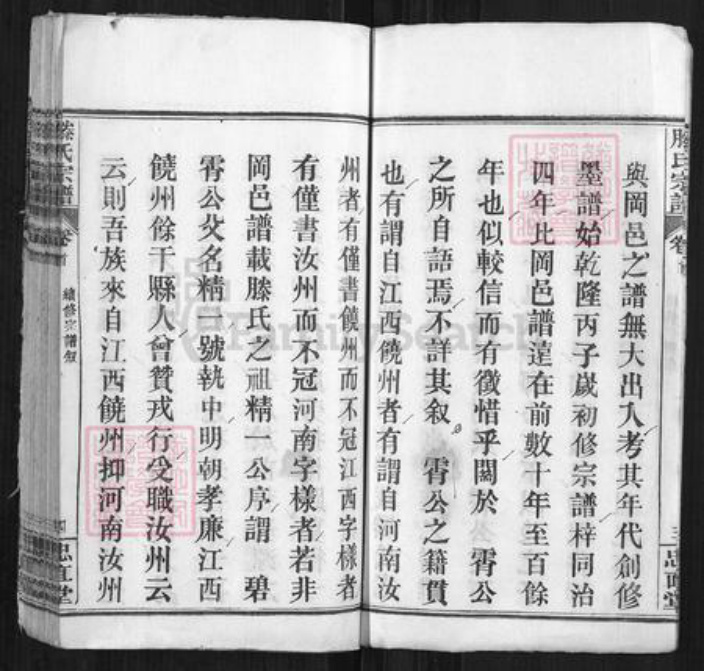 與岡邑之譜無大出入考其年代創修
墨譜始乾隆丙子歲初修宗譜梓同治
四年比岡邑譜遠在前數十年至百餘
年也似較信而有徵惜乎關於 霄公
之所自語焉不詳其叙 霄公之籍貫
也有謂自江西饒州者有謂自河南汝
州者有僅書饒州而不冠江西字樣者
有僅書汝州而不冠河南字樣者若非
岡邑譜載滕氏之祖精一公序謂 碧
霄公父名精一號執中明朝孝廉江西
饒州餘干縣人曾贊戎行受職汝州云
云則吾族來自江西饒州抑河南汝州
滕氏宗譜 卷首 續修宗譜叙 四 忠直堂
滕氏宗譜 卷首 三 忠直堂
FamilySearch